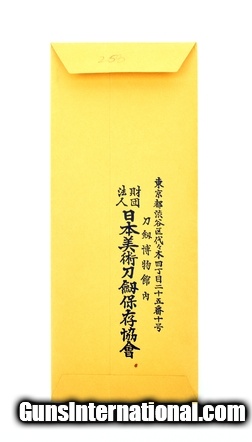 250
東京都渋谷区代々木四丁目二十五番十号
刀劔博物館内
財団
法人
日本美術刀劔保存協會
GunsInternational.com